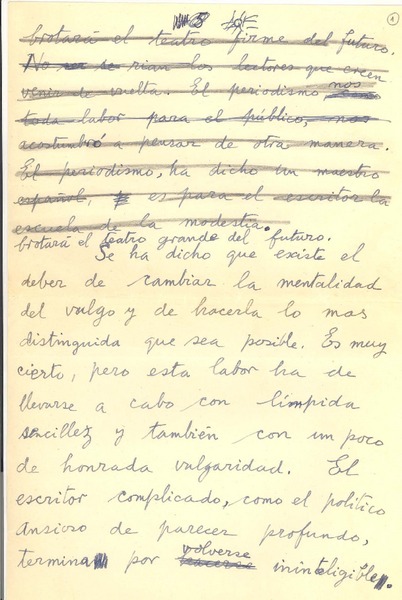 4
brotará el teatro firme del futuro.
No se rían los lectores que creen
venir de vuelta. El periodismo nos
toda labor para el público, nos
acostumbró a pensar de otra manera.
El periodismo, ha dicho un maestro
español, es para el escritor la
escuela de la modestia.
brotará el teatro grande del futuro.
Se ha dicho que existe el
deber de cambiar la mentalidad
del vulgo y de hacerla lo mas
distinguida que sea posible. Es muy
cierto, pero esta labor ha de
llevarse a cabo con límpida
sencillez y también con un poco
de honrada vulgaridad. El
escritor complicado, como el político
ansioso de parecer profundo,
volverse
termina por hacerse ininteligible.